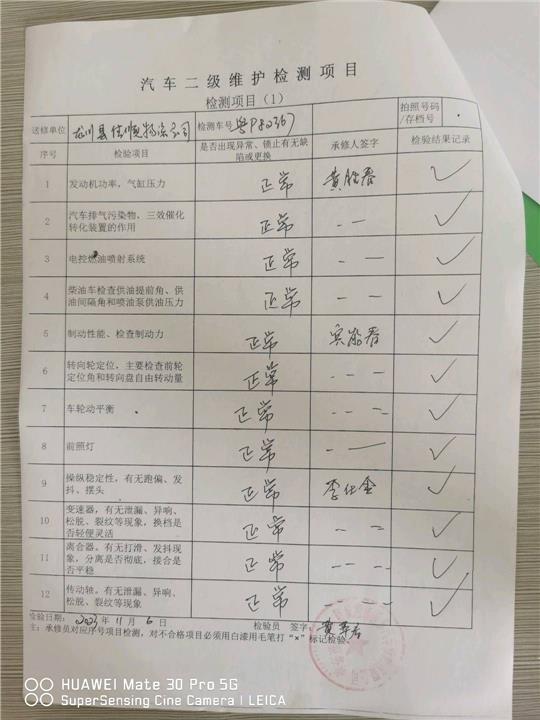 汽车二级维护检测项目
检测项目（1）
送修单位 龙川县佳顺物流公司 检测车号 粤P82367 拍照号码/存档号
序号 检验项目 是否出现异常、锁止有无缺陷或更换 承修人签字 检验结果记录
1 发动机功率，气缸压力 正常 ✓
2 汽车排气污染物，三效催化转化装置的作用 正常 — — ✓
3 电控燃油喷射系统 正常 — — ✓
4 柴油车检查供油提前角、供油间隔角和喷油泵供油压力 正常 — — ✓
5 制动性能、检查制动力 正常 ✓
6 转向轮定位，主要检查前轮定位角和转向盘自由转动量 正常 — — — ✓
7 车轮动平衡 正常 — — — ✓
8 前照灯 正常 — — ✓
9 操纵稳定性，有无跑偏、发抖、摆头 正常 李仕金 ✓
10 变速器，有无泄漏、异响、松脱、裂纹等现象，换档是否轻便灵活 正常 — — — ✓
11 离合器，有无打滑、发抖现象，分离是否彻底，接合是否平稳 正常 — — — ✓
12 传动轴，有无泄漏、异响、松脱、裂纹等现象 正常 — — — ✓
检验日期： 2023年11月6日 检验员 签字：
主：承修员对应序号项目检测，对不合格项目必须用白漆用毛笔打“×”标记检验。
HUAWEI Mate 30 Pro 5G
SuperSensing Cine Camera | LEICA